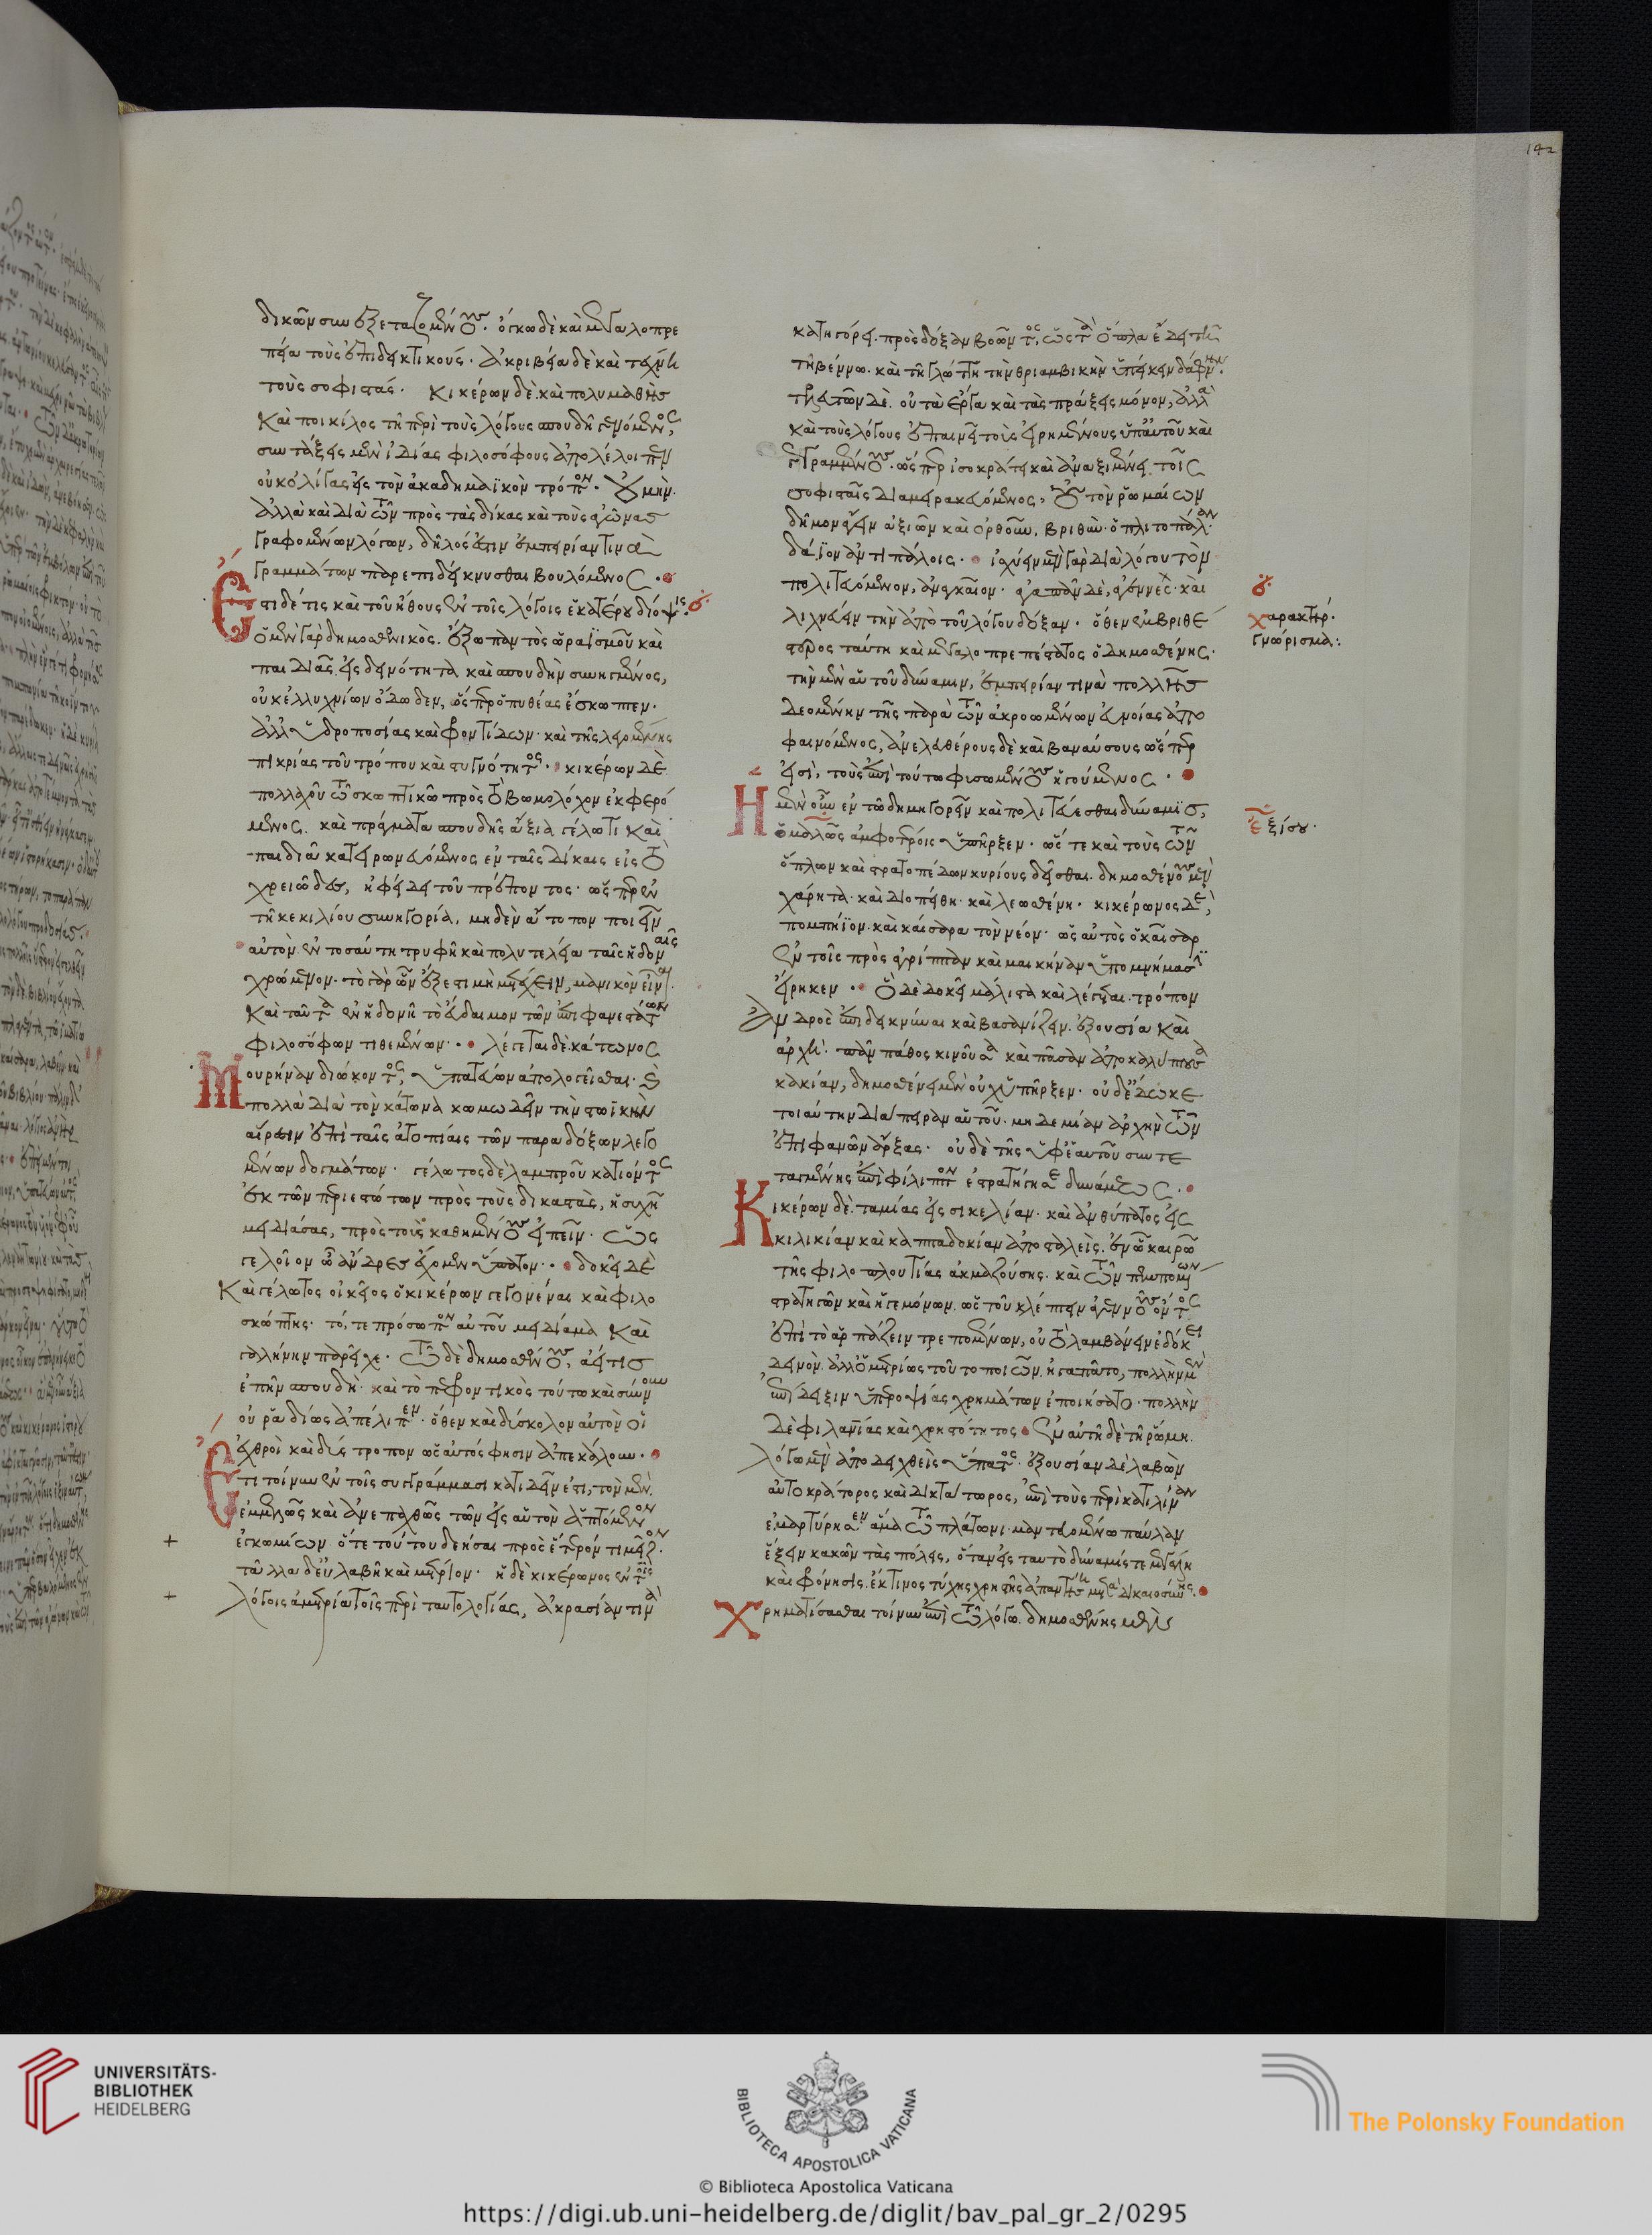 δικῶν συνεξεταζομένους. ὄγκω δὲ καὶ μεγαλοπρε
πεία τοὺς ἐπιδεικτικούς. ἀκριβεία δὲ καὶ τέχνη
τοὺς σοφιστάς. Κικέρων δὲ καὶ πολυμαθὴς
καὶ ποικίλος τῆ περὶ τοὺς λόγους σπουδῆ γενόμενος,
συντάξεις μὲν ἰδίας φιλοσόφους ἀπολέλοιπεν
οὐκ ὀλίγας εἰς τὸν ἀκαδημαϊκὸν τρόπον. οὐ μὴν
ἀλλὰ καὶ διὰ τῶν πρὸς τὰς δίκας καὶ τοὺς ἀγῶνας
γραφομένων λόγων, δῆλός ἐστιν ἐμπειρίαν τινὰ
γραμμάτων παρεπιδείκνυσθαι βουλόμενος.
Ἔστι δέ τις καὶ τοῦ ἤθους ἐν τοῖς λόγοις ἑκατέρου δίοψις.
ὁ μὲν γὰρ δημοσθενικὸς. ἔξω παντὸς ὡραϊσμοῦ καὶ
παιδιᾶς εἰς δεινότητα καὶ σπουδὴν συνηγμένος,
οὐκ ἐλλυχνίων ὄδωδεν, ὥσπερ ὁ πυθέας ἔσκωπτεν.
ἀλλ' ὑδροποσίας καὶ φροντίδων. καὶ τῆς λεγομένης
πικρίας τοῦ τρόπου καὶ στυγνότητος. κικέρων δὲ
πολλαχοῦ τῶ σκωπτικῶ πρὸς τὸ βωμολόχον ἐκφερό
μενος. καὶ πράγματα σπουδῆς ἄξια γέλωτι καὶ
παιδιᾶ κατειρωνευόμενος ἐν ταῖς δίκαις εἰς τὸ
χρειῶδες, ἠφείδει τοῦ πρέποντος. ὥσπερ ἐν
τῆ κεκιλίου συνηγορία, μηδὲν ἄτοπον ποιεῖν
αὐτὸν ἐν τοσαύτη τρυφῆ καὶ πολυτελεία ταῖς ἡδοναῖς
χρώμενον. τὸ γὰρ ὧν ἔξεστι μὴ μετέχειν, μανικὸν εἶναι.
καὶ ταῦτα ἐν ἡδονῆ τὸ εὔδαιμον τῶν ἐπιφανεστάτων
φιλοσόφων τιθεμένων. λέγεται δὲ κάτωνος
Μουρήναν διώκοντος, ὑπατεύων ἀπολογεῖσθαι. καὶ
πολλὰ διὰ τὸν κάτωνα κωμωδεῖν τὴν στωϊκὴν
αἵρεσιν ἐπὶ ταῖς ἀτοπίαις τῶν παραδόξων λεγο
μένων δογμάτων. γέλωτος δὲ λαμπροῦ κατιόντος
ἐκ τῶν περιεστώτων πρὸς τοὺς δικαστὰς, ἡσυχῆ
μειδιάσας, πρὸς τοὺς καθημένους εἰπεῖν. ὡς
γελοῖον ὦ ἄνδρες ἔχομεν ὕπατον. δοκεῖ δὲ
καὶ γέλωτος οἰκεῖος ὁ κικέρων γεγονέναι καὶ φιλο
σκώπτης. τό, τε πρόσωπον αὐτοῦ μειδίαμα καὶ
γαλήνην παρεῖχε. τῶ δὲ δημοσθένους, ἀεί τις
ἐπῆν σπουδὴ. καὶ τὸ πεφροντικὸς τούτω καὶ σύννουν
οὐ ῥαδίως ἀπέλιπεν. ὅθεν καὶ δύσκολον αὐτὸν οἱ
ἐχθροὶ καὶ δύστροπον ὡς αὐτός φησιν ἀπεκάλουν.
Ἔτι τοίνυν ἐν τοῖς συγγράμμασι κατιδεῖν ἔστι, τὸν μὲν.
ἐμμελῶς καὶ ἀνεπαχθῶς τῶν εἰς αὑτὸν ἁπτόμενον
ἐγκωμίων ὅτε τούτου δεήσαι πρὸς ἕτερόν τι μεῖζον.
τἆλλα δ' εὐλαβῆ καὶ μέτριον. ἡ δὲ κικέρωνος ἐν τοῖς
λόγοις ἀμετρία τοῖς περὶ ταυτολογίας, ἀκρασίαν τινὰ
κατηγόρει. πρὸς δόξαν βοῶντος, ὡς τὰ ὅπλα ἔδει τῆ
τηβέννω. καὶ τῆ γλώττη τὴν θριαμβικὴν ὑπείκειν δάφνην.
τελευτῶν δὲ. οὐ τὰ ἔργα καὶ τὰς πράξεις μόνον, ἀλλὰ
καὶ τοὺς λόγους ἐπαινεῖ τοὺς εἰρημένους ὑπ' αὐτοῦ καὶ
γεγραμμένους. ὥσπερ ἰσοκράτει καὶ ἀναξιμένει τοῖς
σοφισταῖς διαμειρακιευόμενος, οὐ τὸν ῥωμαίων
δῆμον ἄγειν ἀξιῶν καὶ ὀρθοῦν, βριθὺν ὁπλιτοπάλαν.
δάϊον ἀντιπάλοις. ἰσχύειν μὲν γὰρ διὰ λόγου τὸν
πολιτευόμενον, ἀναγκαῖον. ἀγαπᾶν δὲ, ἀγεννὲς. καὶ
λιχνεύειν τὴν ἀπὸ τοῦ λόγου δόξαν. ὅθεν ἐμβριθέ
στερος ταύτη καὶ μεγαλοπρεπέστατος ὁ δημοσθένης.
τὴν μὲν αὑτοῦ δύναμιν, ἐμπειρίαν τινὰ πολλῆς
δεομένην τῆς παρὰ τῶν ἀκροωμένων εὐνοίας ἀπο
φαινόμενος, ἀνελευθέρους δὲ καὶ βαναύσους ὥσπερ
εἰσὶ, τοὺς ἐπὶ τούτω φυσωμένους ἡγούμενος.
Ἡ μὲν οὖν ἐν τῶ δημηγορεῖν καὶ πολιτεύεσθαι δύναμις,
ὁμαλῶς ἀμφοτέροις ὑπῆρξεν. ὥστε καὶ τοὺς τῶν
ὅπλων καὶ στρατοπέδων κυρίους δεῖσθαι. δημοσθένους μὲν
χάρητα. καὶ διοπείθη. καὶ λεωσθένη. κικέρωνος δὲ,
πομπήϊον. καὶ καίσαρα τὸν νέον. ὡς αὐτὸς ὁ καῖσαρ
ἐν τοῖς πρὸς ἀγρίππαν καὶ μαικήναν ὑπομνήμασιν
εἴρηκεν. Ὃ δὲ δοκεῖ μάλιστα καὶ λέγεται. τρόπον
ἀνδρὸς ἐπιδεικνύναι καὶ βασανίζειν. ἐξουσία καὶ
ἀρχὴ. πᾶν πάθος κινοῦσα καὶ πᾶσαν ἀποκαλύπτουσα
κακίαν, δημοσθένει μὲν οὐχ ὑπῆρξεν. οὐδ' ἔδωκε
τοιαύτην διάπειραν αὑτοῦ. μηδεμίαν ἀρχὴν τῶν
ἐπιφανῶν ἄρξας. οὐδὲ τῆς ὑφ' ἑαυτοῦ συντε
ταγμένης ἐπὶ φίλιππον ἐστρατήγησε δυνάμεως.
Κικέρων δὲ. ταμίας εἰς σικελίαν. καὶ ἀνθύπατος εἰς
κιλικίαν καὶ καππαδοκίαν ἀποσταλεὶς. ἐν ὧ καιρῶ
τῆς φιλοπλουτίας ἀκμαζούσης. καὶ τῶν πεμπομένων
στρατηγῶν καὶ ἡγεμόνων. ὡς τοῦ κλέπτειν ἀγεννοῦς ὄντος
ἐπὶ τὸ ἁρπάζειν τρεπομένων, οὐ τὸ λαμβάνειν ἐδόκει
δεινὸν. ἀλλ' ὁ μετρίως τοῦτο ποιῶν. ἠγαπᾶτο, πολλὴν μὲν
ἐπίδειξιν ὑπεροψίας χρημάτων ἐποιήσατο. πολλὴν
δὲ φιλανθρωπίας καὶ χρηστότητος. Ἐν αὐτῆ δὲ τῆ ῥώμη.
λόγω μὲν ἀποδειχθεὶς ὕπατος. ἐξουσίαν δὲ λαβὼν
αὐτοκράτορος καὶ δικτάτωρος, ἐπὶ τοὺς περὶ κατιλίναν
ἐμαρτύρησεν ἅμα τῶ πλάτωνι. μαντευομένω παῦλαν
ἕξειν κακῶν τὰς πόλεις, ὅταν εἰς ταυτὸ δύναμίς τε μεγάλη
καὶ φρόνησις. ἔκ τινος τύχης χρηστῆς ἀπαντήση μετὰ δικαιοσύνης.
Χρηματίσασθαι τοίνυν ἐπὶ τῶ λόγω. δημοσθένης μὲν
χαρακτήρ.
γνώρισμα:
ἐξίσου.
142
UNIVERSITÄTS-
BIBLIOTHEK
HEIDELBERG
BIBLIOTECA APOSTOLICA VATICANA
The Polonsky Foundation
© Biblioteca Apostolica Vaticana
https://digi.ub.uni-heidelberg.de/diglit/bav_pal_gr_2/0295